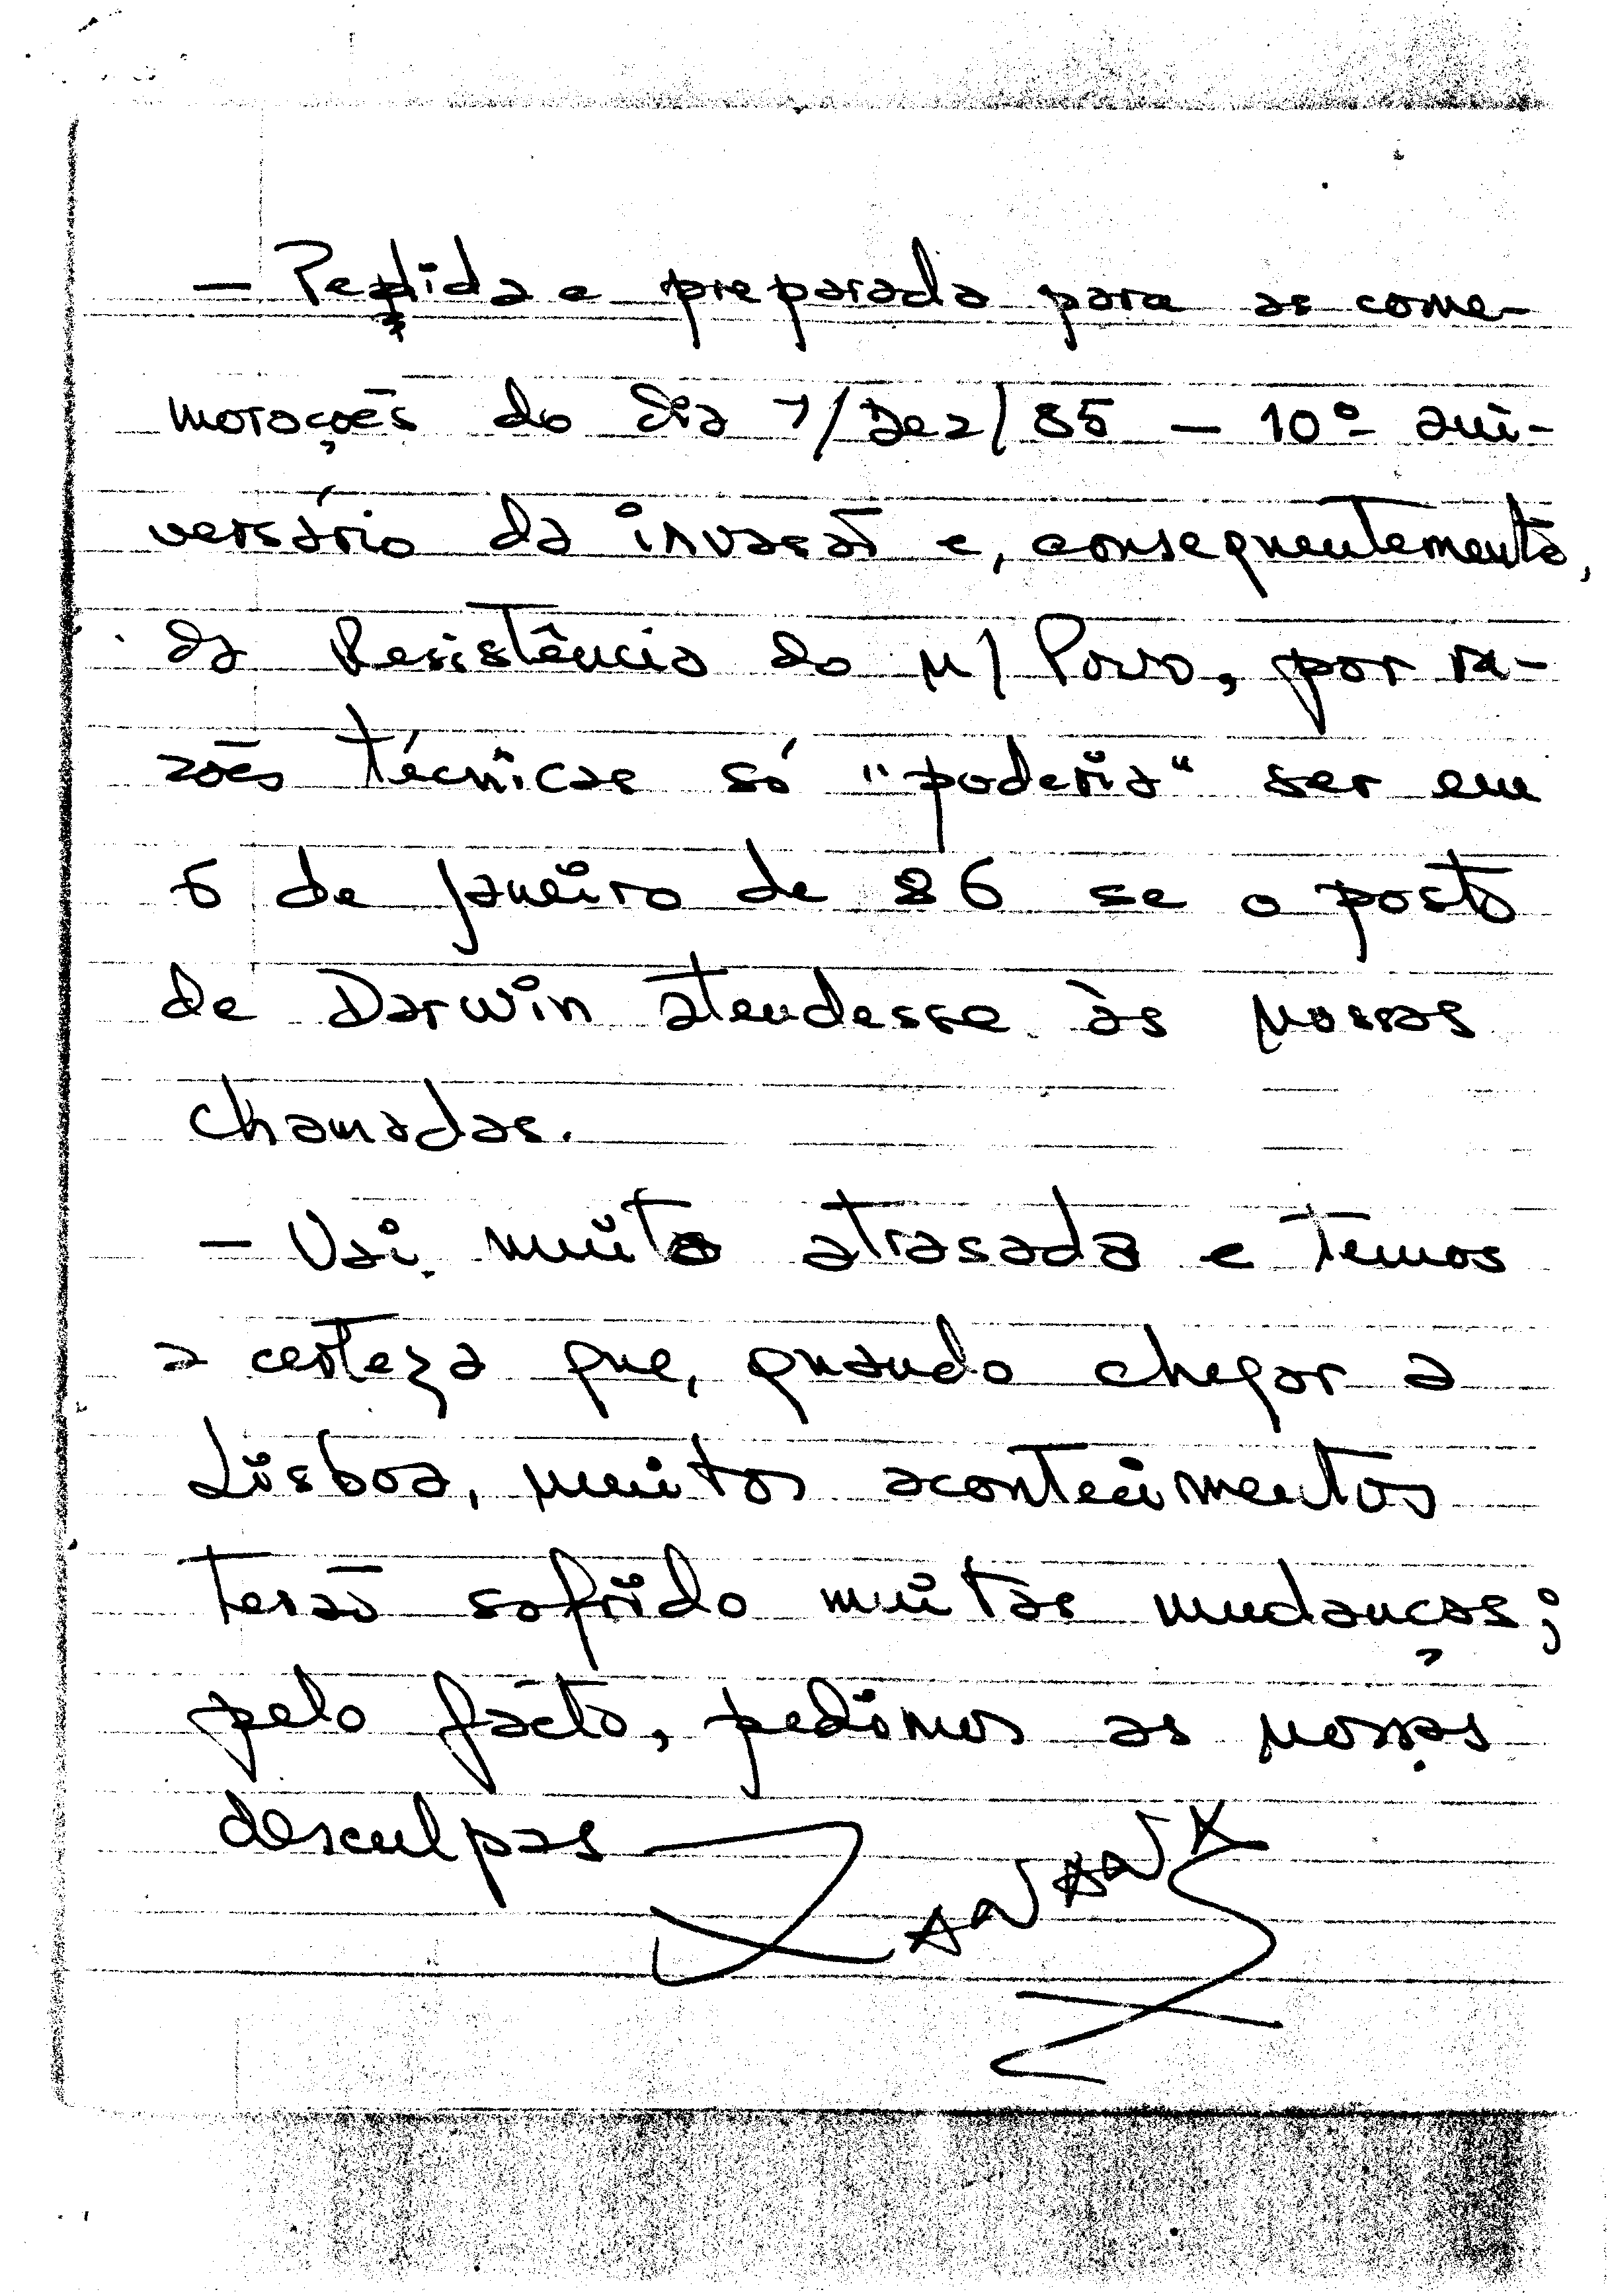 — Pedida e preparada para as come-
morações do dia 7/Dez/85 — 10º ani-
versário da invasão e, consequentemente,
da Resistência do N/ Povo, por ra-
zões técnicas só "poderia" ser em
6 de Janeiro de 86 se o posto
de Darwin atendesse às nossas
chamadas.
— Vai muito atrasada e temos
a certeza que, quando chegar a
Lisboa, muitos acontecimentos
terão sofrido muitas mudanças;
pelo facto, pedimos as nossas
desculpas